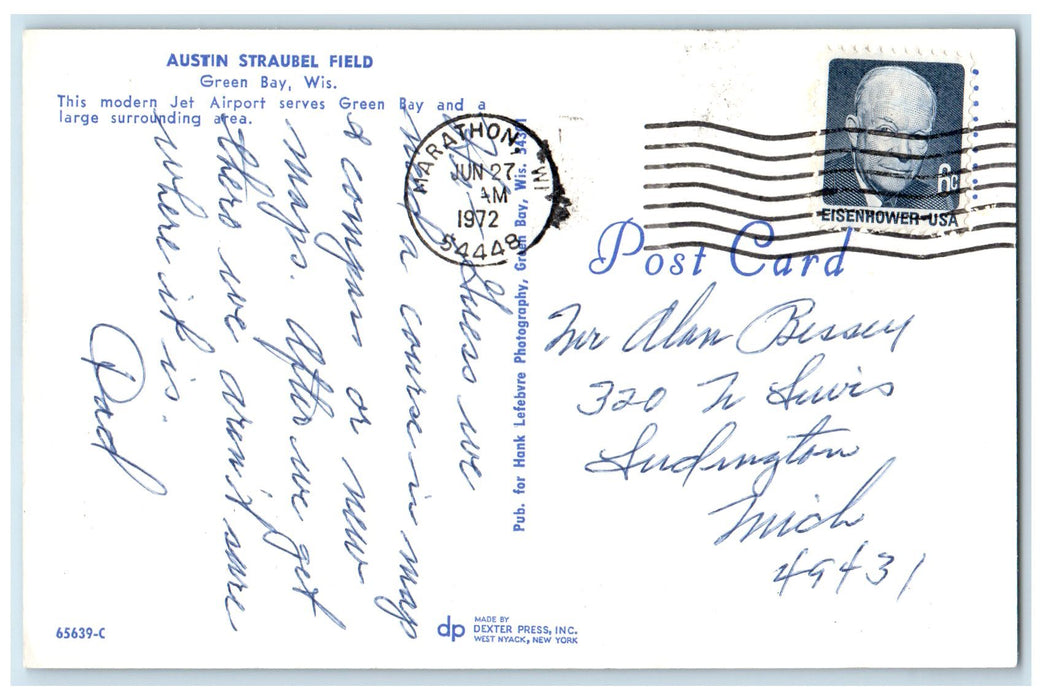 AUSTIN STRAUBEL FIELD
Green Bay, Wis.
This modern Jet Airport serves Green Bay and a
large surrounding area.
Guess we
need a course in map
& compass or new
maps. After we get
there we aren't sure
where it is.
Dad
Pub. for Hank Lefebvre Photography, Green Bay, Wis.
MARATHON, WI
JUN 27
AM
1972
54448
6c
EISENHOWER·USA
Post Card
Mr Alan Bessey
320 N Lewis
Ludington
Mich
49431
65639-C
dp
MADE BY
DEXTER PRESS, INC.
WEST NYACK, NEW YORK